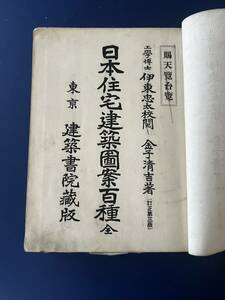 賜天覽台覽
工學博士 伊東忠太校閲 金子清吉著 (訂正第三版)
日本住宅建築圖案百種 全
東京 建築書院藏版